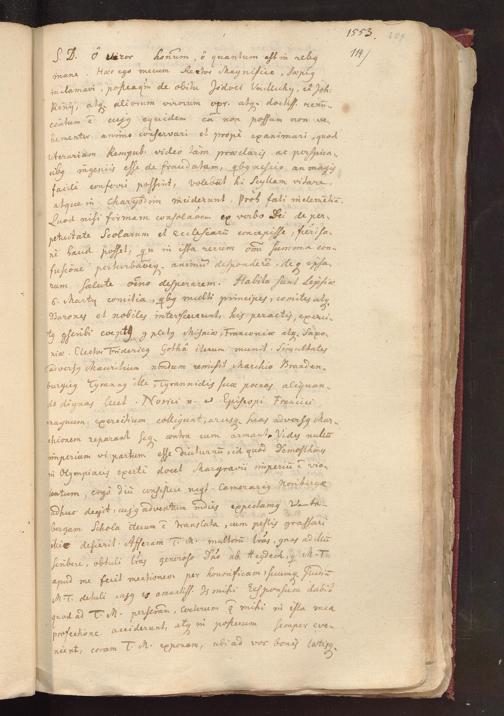 1553.
S. D. ô viros bonum, ô quantum est in rebus
inane. Hæc ego mecum Rector Magnifice, sæpius
inclamavi, posteaquam de obitu Jodoci et Joh.
atque aliorum virorum opt. atque doctiss. nun-
ciatum ē cujus equidem cā non possum non ve-
hementer animo consternari et propè exanimari, quod
literariam Rempub. video tàm præclaris ac perspica-
cibus ingeniis esse defraudatam, qbus nescio an magis
facilè conferri possint, volebāt hi Scyllam vitare,
atque in Charybdim inciderunt. Proh fati inclementiā.
Quod nisi firmam consolaōem ex verbo Dei de per-
petuitate Scolarum et Ecclesiarū concepisse, ferisse-
rē haud posset, qn in ista rerum oīm summa con-
fusione perturbatus, animum desponderē, de ipsa-
rum salute oīno desperarem. Habita sunt Lipsiæ
6. Martij comitia, qbus multi principes, comites atque
Barones et nobiles interfuerunt, his peractis, exerci-
tus scribi coeptus Misniæ, Franconiæ atque Saxo-
niæ. Elector Fridericus Gotha iterum munit. Simultates
adversus Mauritium nōdum remisit. Marchio Branden-
burgicus Tyrannus ille Tyrannidis suæ poenas aliquan-
do dignas luet. Norici n. et Episcopi Francici
magnum exercitum colligunt, atque suas adversus Mar-
chionem reparant seque contra eum armant. Vides nullū
imperium vi partum esse diuturnū, id quod Demosthenis
in Olympiacis experti docet Margravij imperiū ē vio-
lentum, ergò diū consistere neqt. Camerarius Noribergæ
adhuc degit, cujus adventum indies expectamus. Vuite-
bergam Schola iterum ē translata, cum pestis grassari
ibi desierit. Afferam T. M. multorū līas, quas ad illū
scribere, obtuli līas generoso Dño ab Heydeck, q M. T.
apud me fecit mentionem per honorificam,
M. T. detuli amantiss. Is mihi Responsum dabit
quod ad T. M. perferam, cæterum quæ mihi in ista mea
profectione acciderunt, atque in posterum semper eve-
nient, coram T. M. exponam, ubi ad vos bonis